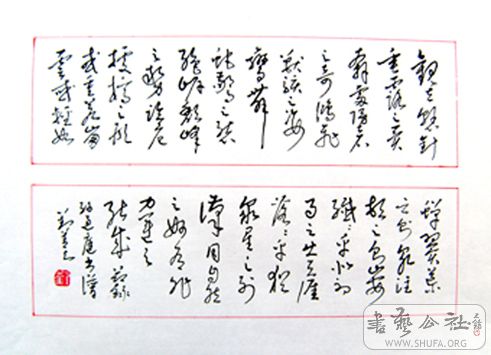 觀夫懸針
垂露之異
奔雷墜石
之奇鴻飛
獸駭之姿
鸞舞
蛇驚之態
絕岸頹峰
之勢臨危
據槁之形
或重若崩
雲或輕如
蟬翼導
之則泉注
頓之則山安
纖纖乎似初
月之出天涯
落落乎猶
眾星之列
河漢同自然
之妙有非
力運之
能成節錄
孫過庭書譜
書藝公社
WWW.SHUFA.ORG